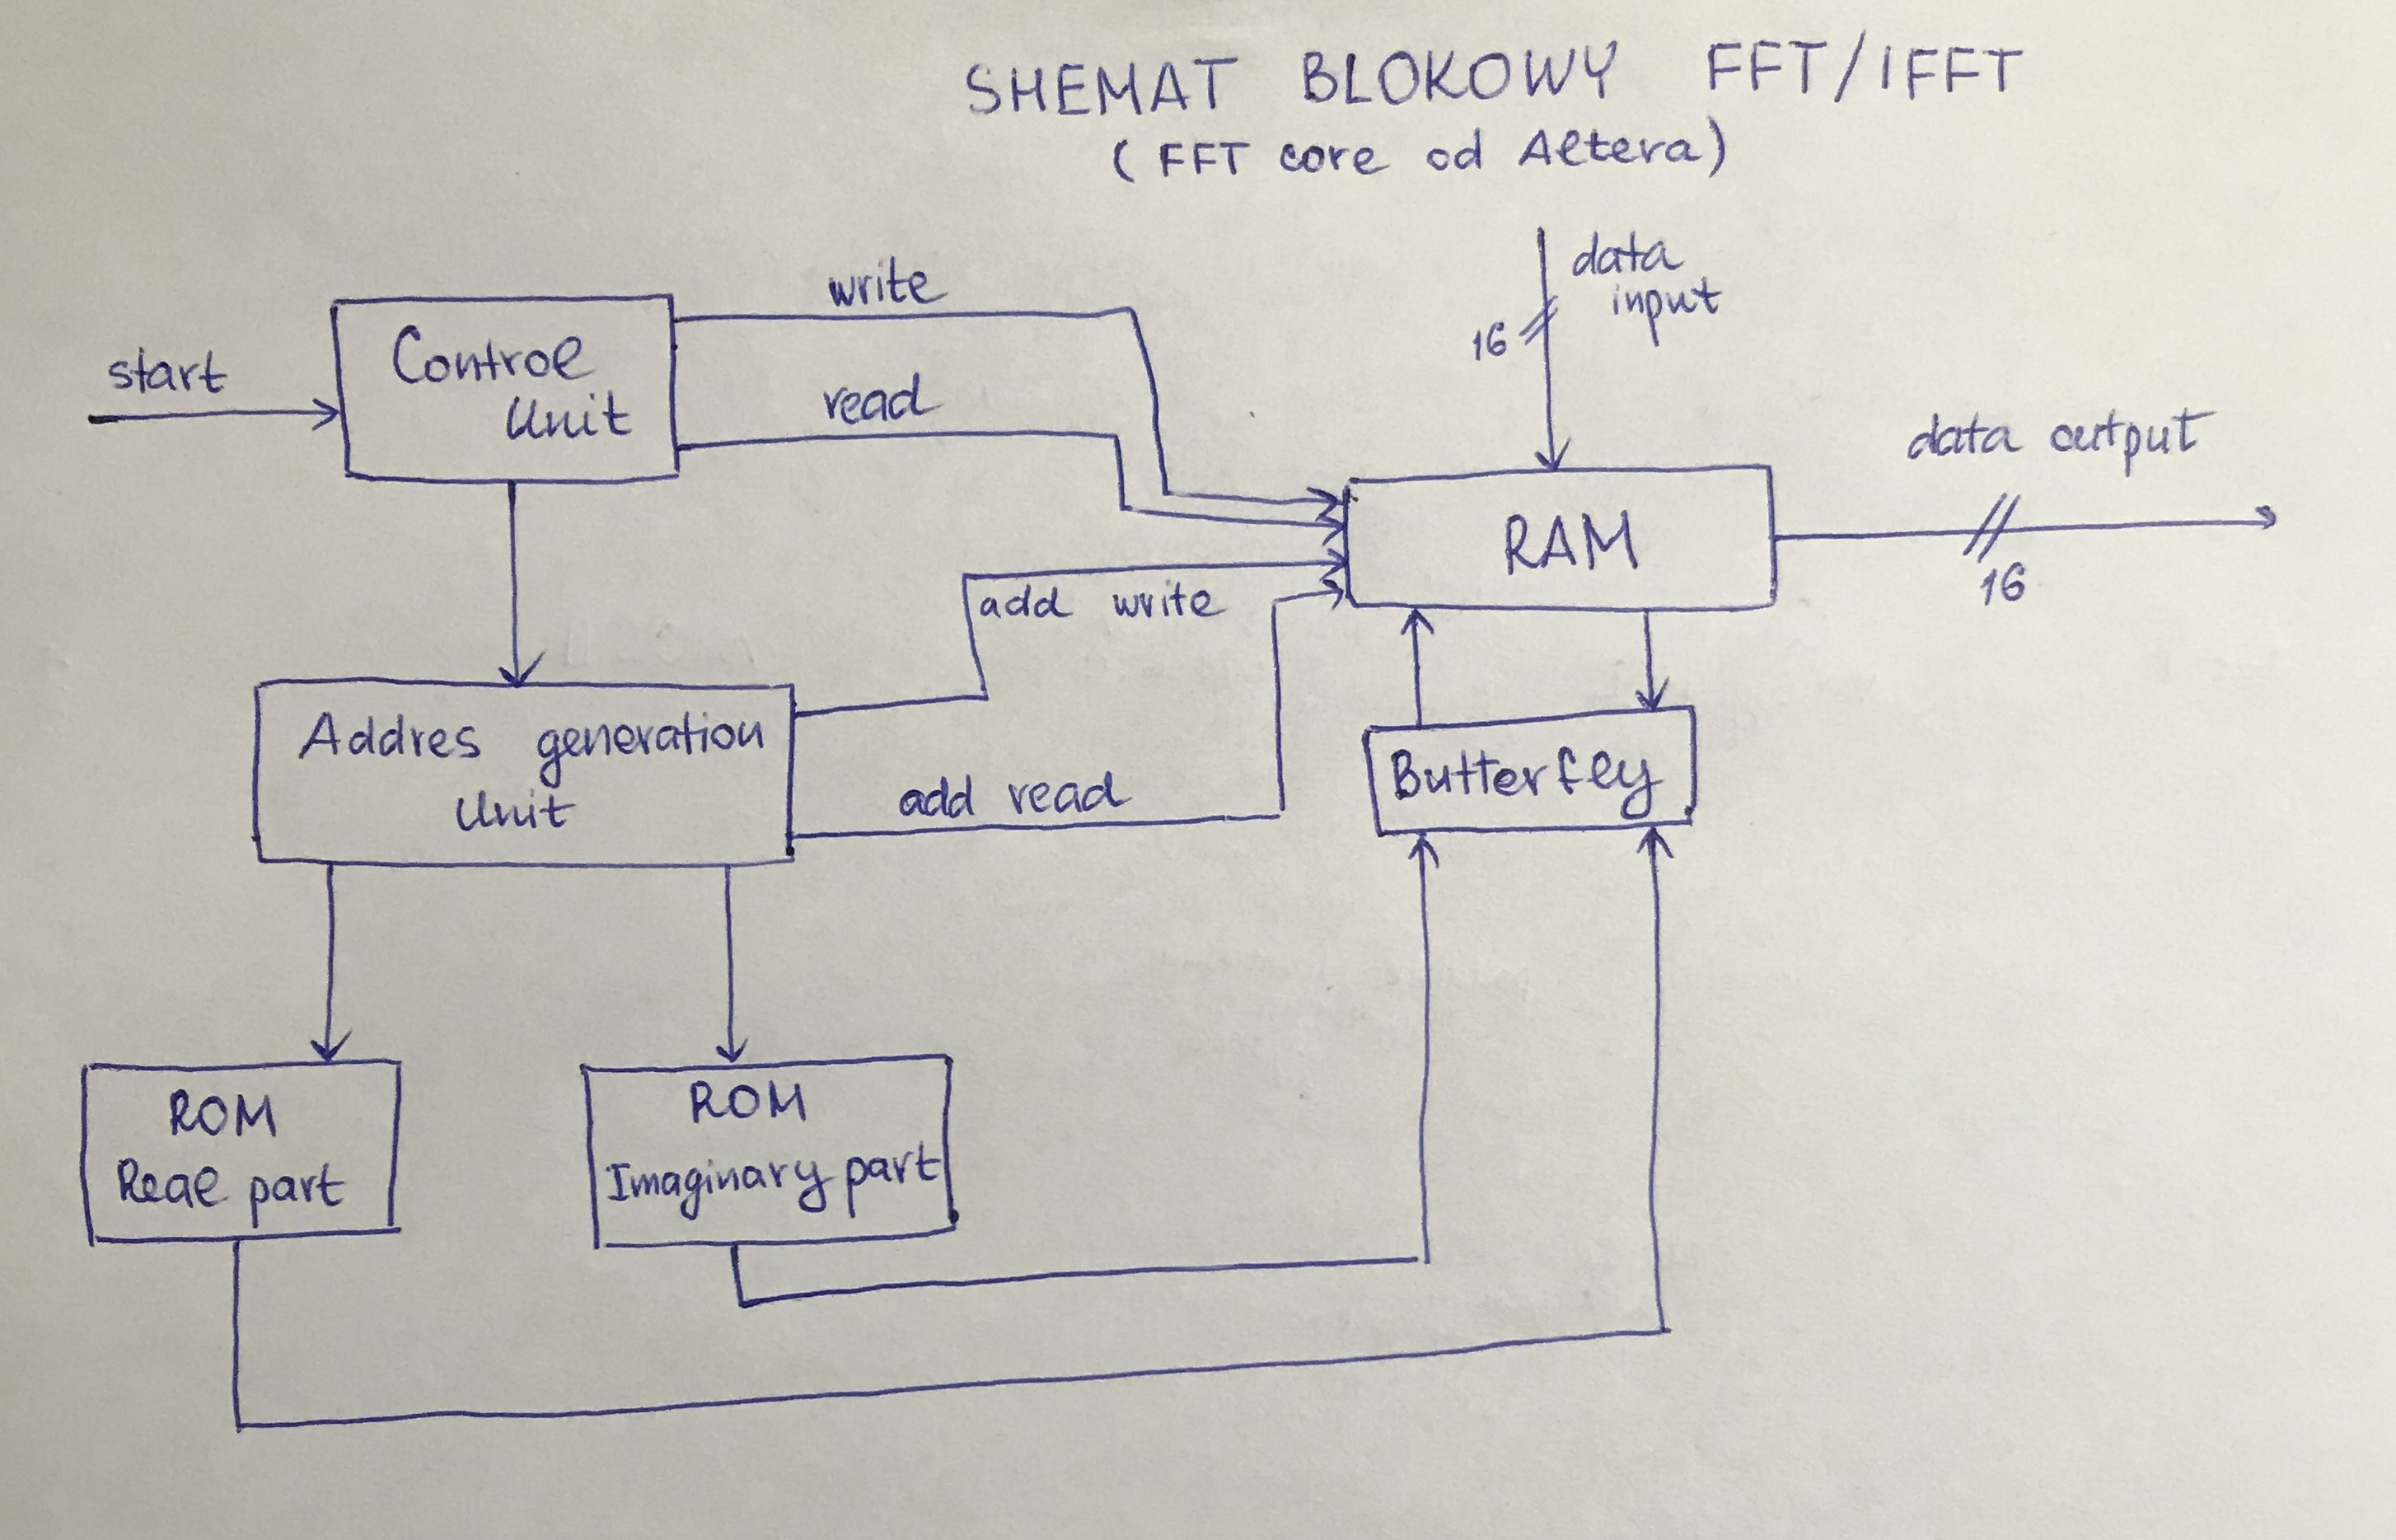 SHEMAT BLOKOWY FFT/IFFT
(FFT core od Altera)
data
input
16
write
start
Control
Unit
read
data output
RAM
16
add write
Addres generation
Unit
add read
Butterfly
ROM
Real part
ROM
Imaginary part